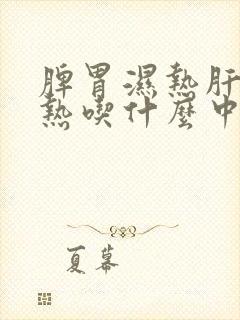 脾胃濕熱肝
熱喫什麼中
夏幕